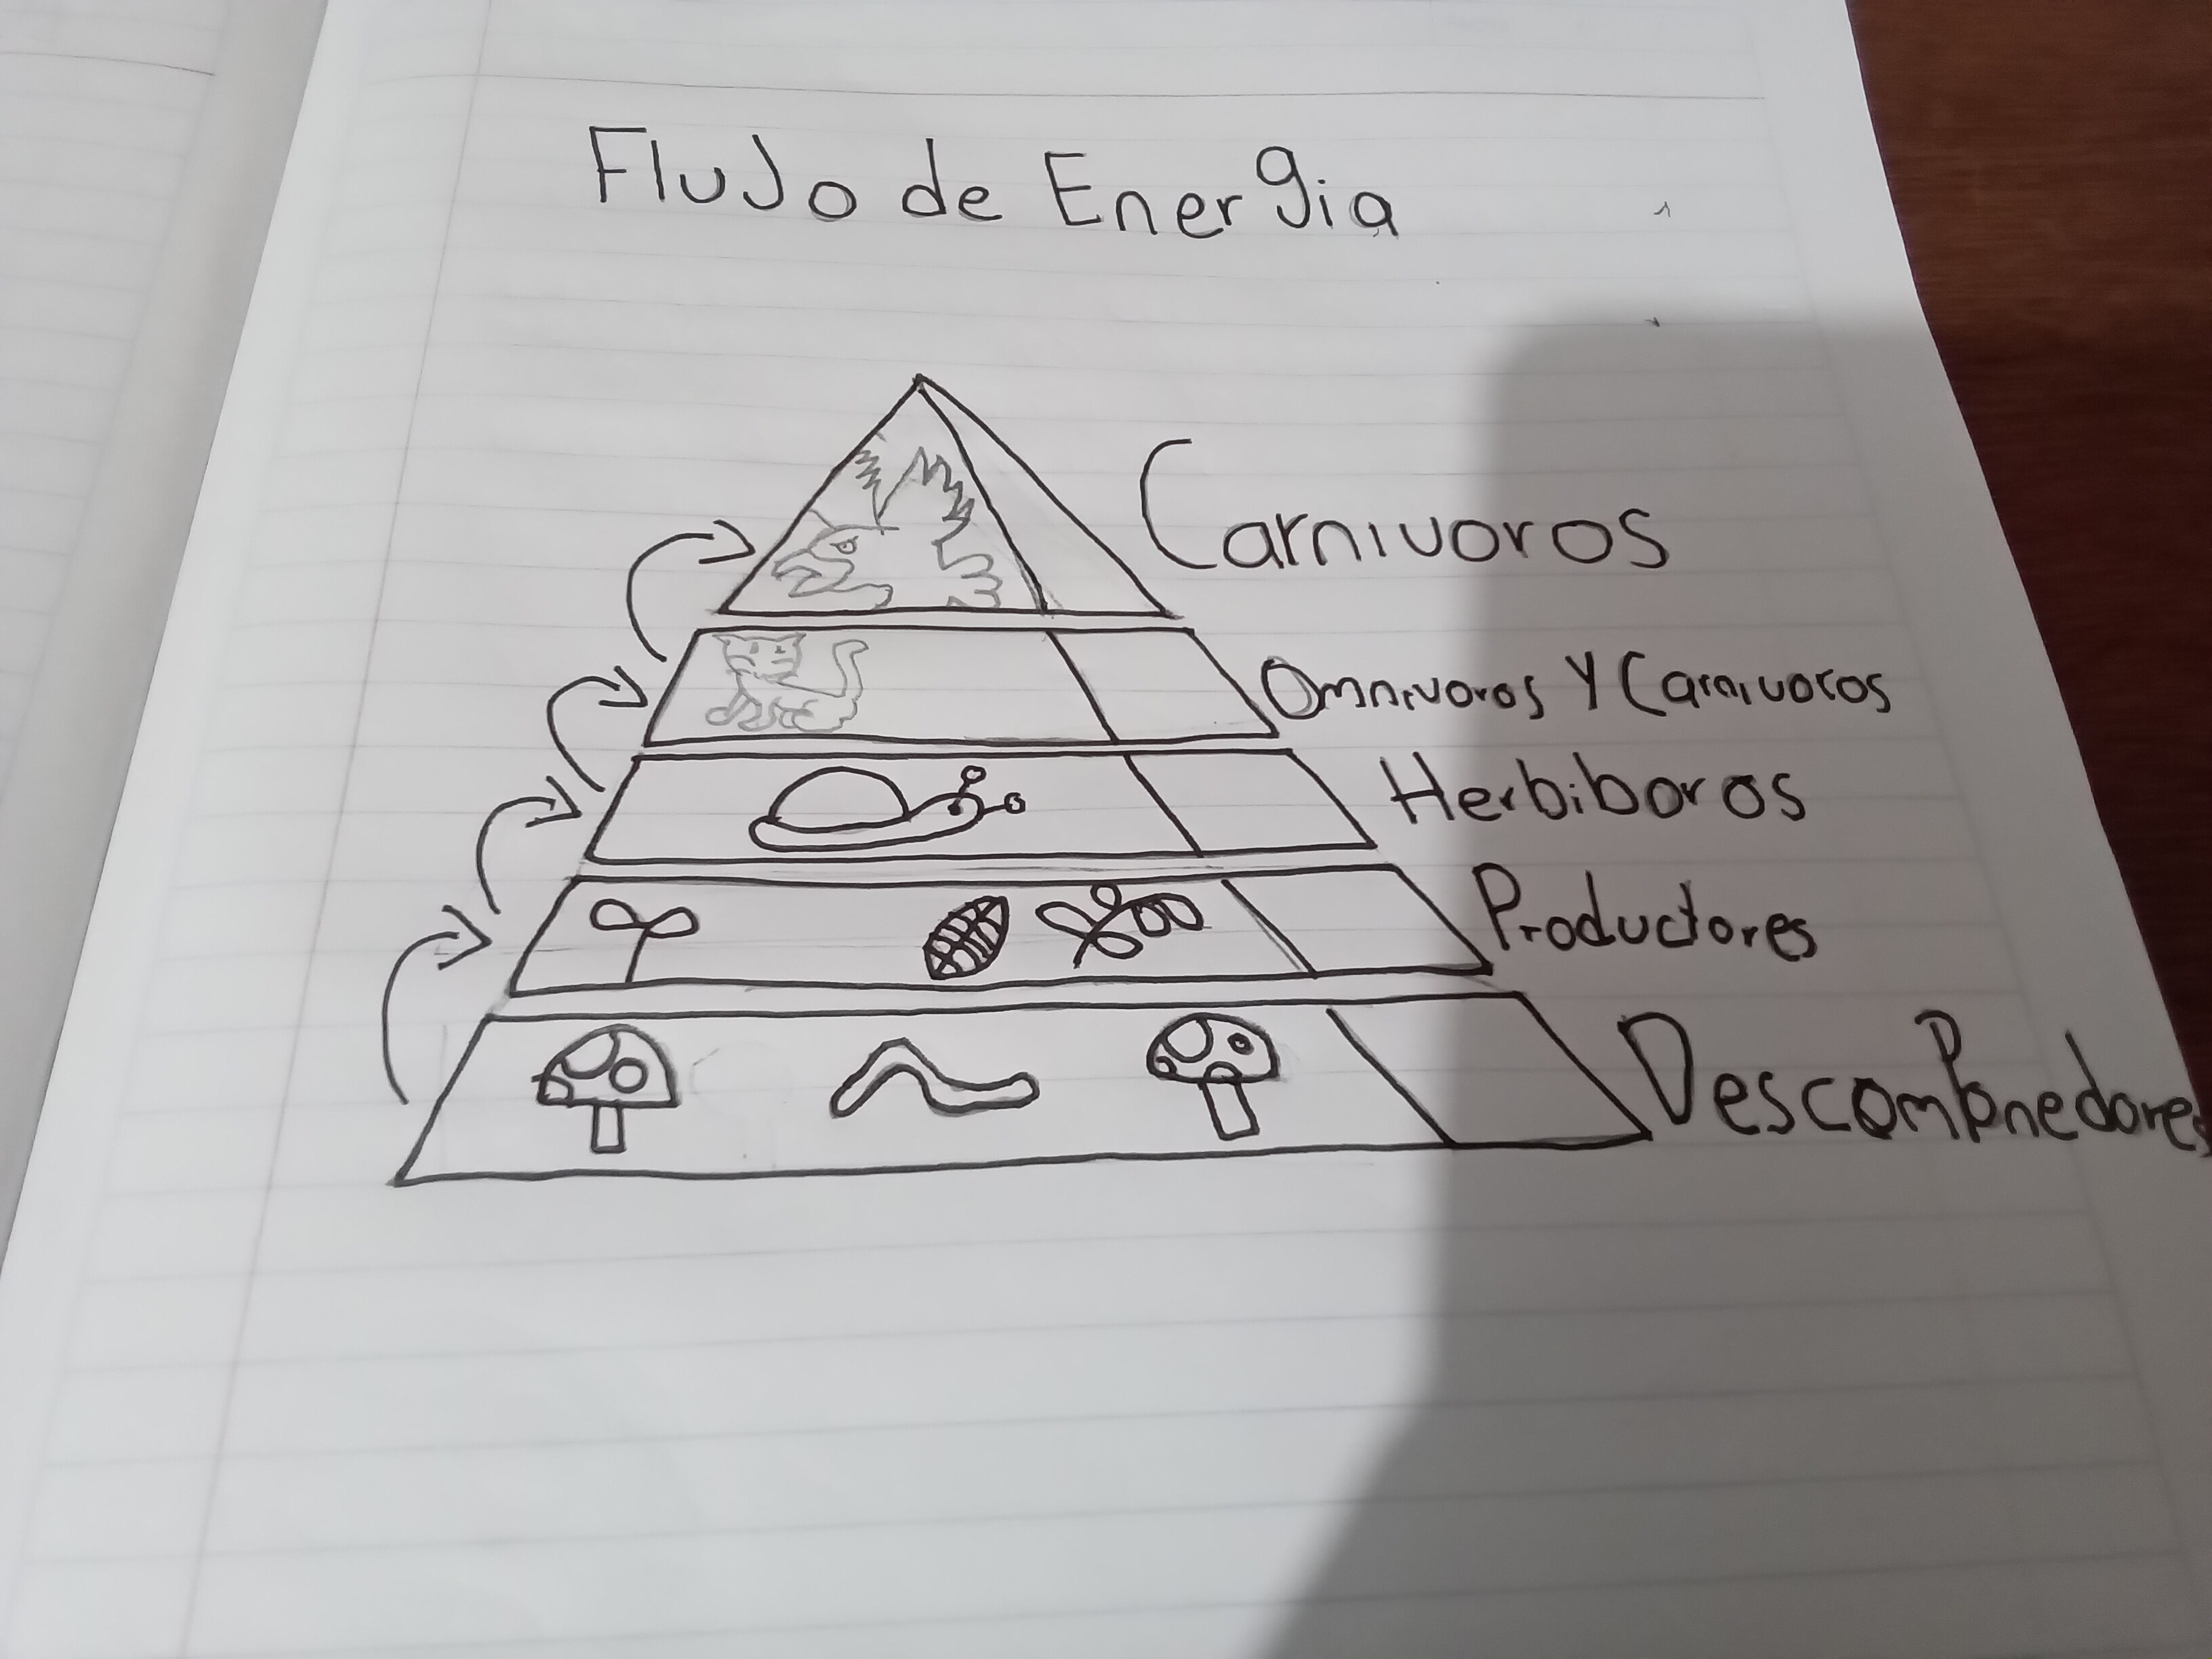 Flujo de Energia
Carnivoros
Omnivoros y Carnivoros
Herbiboros
Productores
Descomponedores